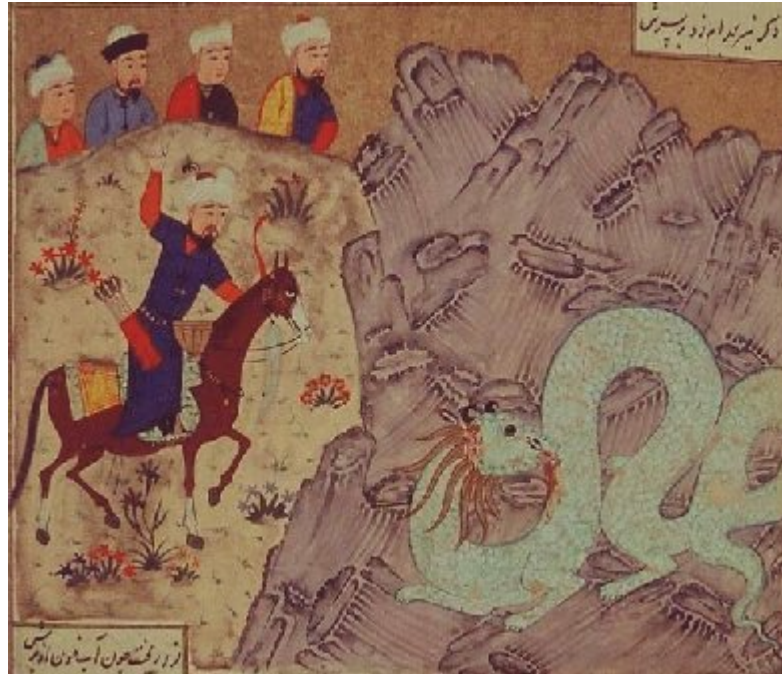 دکر تیر بهرام زد بر سرش
فرو ریخت چون آب خون از برش